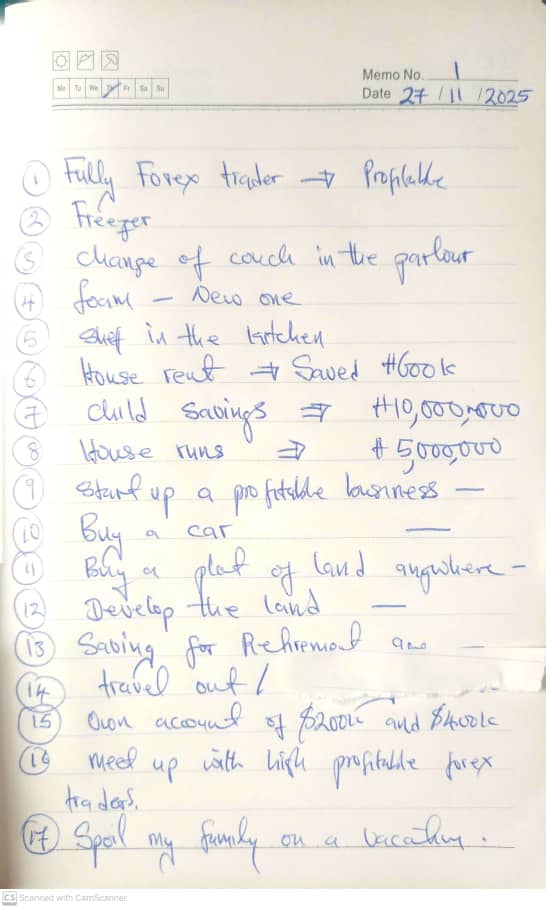 Memo No. 1
Mo Tu We Th Fr Sa Su
Date 27/11/2025
1 Fully Forex trader → Profitable
2 Freezer
3 change of couch in the parlour
4 foam - New one
5 shelf in the kitchen
6 House rent → Saved ₦600k
7 child savings ⇒ ₦10,000,000
8 House runs ⇒ ₦5,000,000
9 Start up a profitable business —
10 Buy a car —
11 Buy a plot of land anywhere -
12 Develop the land —
13 Saving for Retirement —
14 travel out /
15 Own account of $200k and $400k
16 meet up with high profitable forex
traders.
17 Spoil my family on a vacation.
CS Scanned with CamScanner